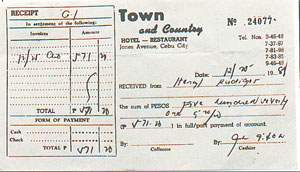 RECEIPT
In settlement of the following:
Invoices Amount
571.20
TOTAL P 571 20
FORM OF PAYMENT
Cash
Check
TOTAL P 571 20
Town
and Country
HOTEL — RESTAURANT
Jones Avenue, Cebu City
Nº 24077
Tel. Nos. 9-46-48
7-37-97
7-81-98
7-83-51
9-46-48
Date,
RECEIVED FROM Henry
the sum of PESOS Five hundred seventy
one
(P 571.20 ) in full/part payment of account.
By:
Collectors
By:
Cashier